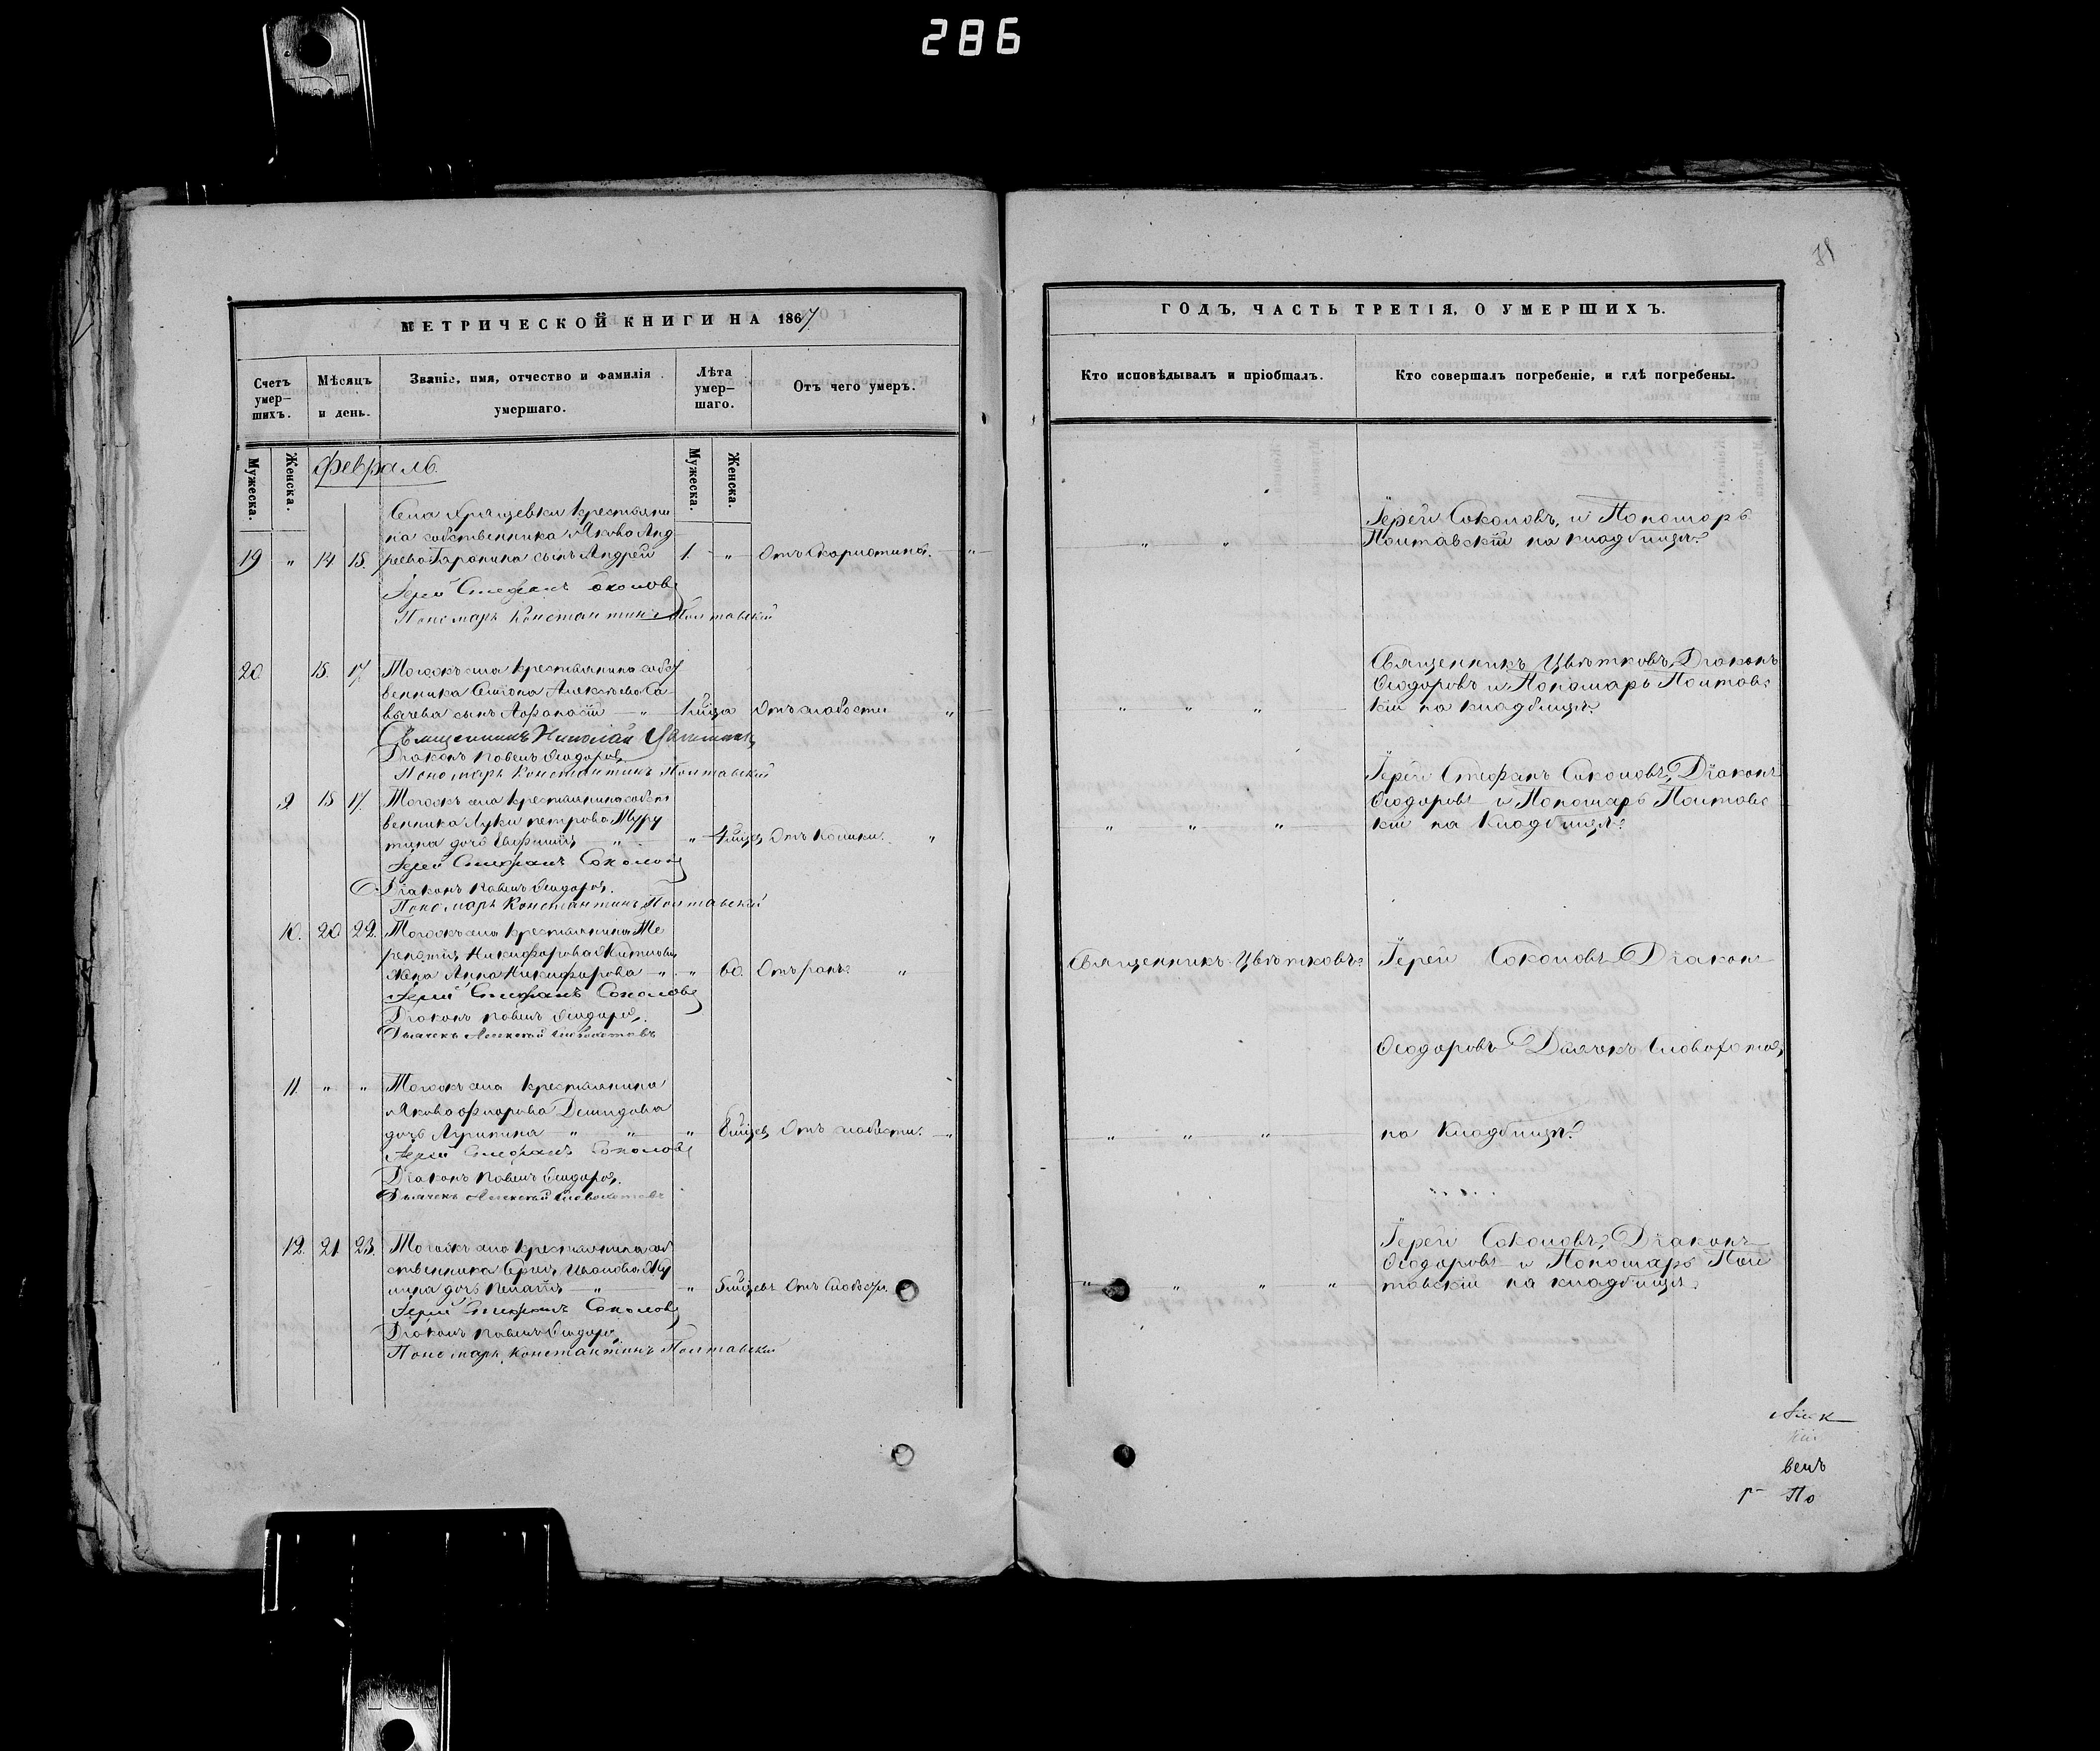 286
МЕТРИЧЕСКОЙ КНИГИ НА 1867
Счетъ умер-шихъ.
Мѣсяцъ и день.
Званіе, имя, отчество и фамилія умершаго.
Лѣта умер-шаго.
Отъ чего умеръ.
Мужеска.
Женска.
Мужеска.
Женска.
Февраль
Села Хрящевки крестьяни
на собственника Якова Анд
19 " 14 15. реева Гаранина сынъ Андрей 1. " Отъ скарлотины. "
Іерей Стефанъ Соколовъ
Пономарь Константинъ Полтавскій
20 15. 17. Тогожъ села крестьянина собст
венника Семіона Алексѣева Са-
вычева сынъ Афанасій " 1 мѣсяца Отъ слабости "
Священникъ Николай Цвѣтковъ
Діаконъ Павелъ Ѳеодоровъ
Пономарь Константинъ Полтавскій
9 15 17. Тогожъ села крестьянина собст
венника Луки Петрова
дочь Евфимія " " 4 мѣсяц Отъ колики. "
Іерей Стефанъ Соколовъ
Діаконъ Павелъ Ѳеодоровъ.
Пономарь Константинъ Полтавскій
10. 20 22. Тогожъ села крестьянина Те
рентія Никифорова
жена Анна Никифорова " " 60. Отъ ранъ "
Іерей Стефанъ Соколовъ
Діаконъ Павелъ Ѳеодоровъ.
Дьячекъ Алексѣй Словохотовъ
11. " " Тогожъ села крестьянина
Якова Флорова Демидова
дочь Агрипина " " " 8 мѣсяцев Отъ слабости. "
Іерей Стефанъ Соколовъ
Діаконъ Павелъ Ѳеодоровъ.
Дьячекъ Алексѣй Словохотовъ
12. 21 23. Тогожъ села крестьянина соб
ственника Иванова
дочь Пелагія " " 5 мѣсяцевъ Отъ слабости.
Іерей Стефанъ Соколовъ
Діаконъ Павелъ Ѳеодоровъ
Пономарь Константинъ Полтавскій
ГОДЪ, ЧАСТЬ ТРЕТІЯ, О УМЕРШИХЪ.
Кто исповѣдывалъ и пріобщалъ.
Кто совершалъ погребеніе, и гдѣ погребены.
Іерей Соколовъ, и Пономарь
" " Полтавскій на кладбищѣ.
Священникъ Цвѣтковъ, Діаконъ
Ѳеодоровъ и Пономарь Полтавс
" " " кій на кладбищѣ.
Іерей Стефанъ Соколовъ, Діаконъ
Ѳеодоровъ и Пономарь Полтавс
" " " кій на кладбищѣ.
Священникъ Цвѣтковъ. Іерей Соколовъ Діаконъ
Ѳеодоровъ Дьячекъ Словохотовъ
" " " на кладбищѣ.
Іерей Соколовъ, Діаконъ
Ѳеодоровъ и Пономарь Пол
" " " " тавскій на кладбищѣ.
велъ
По